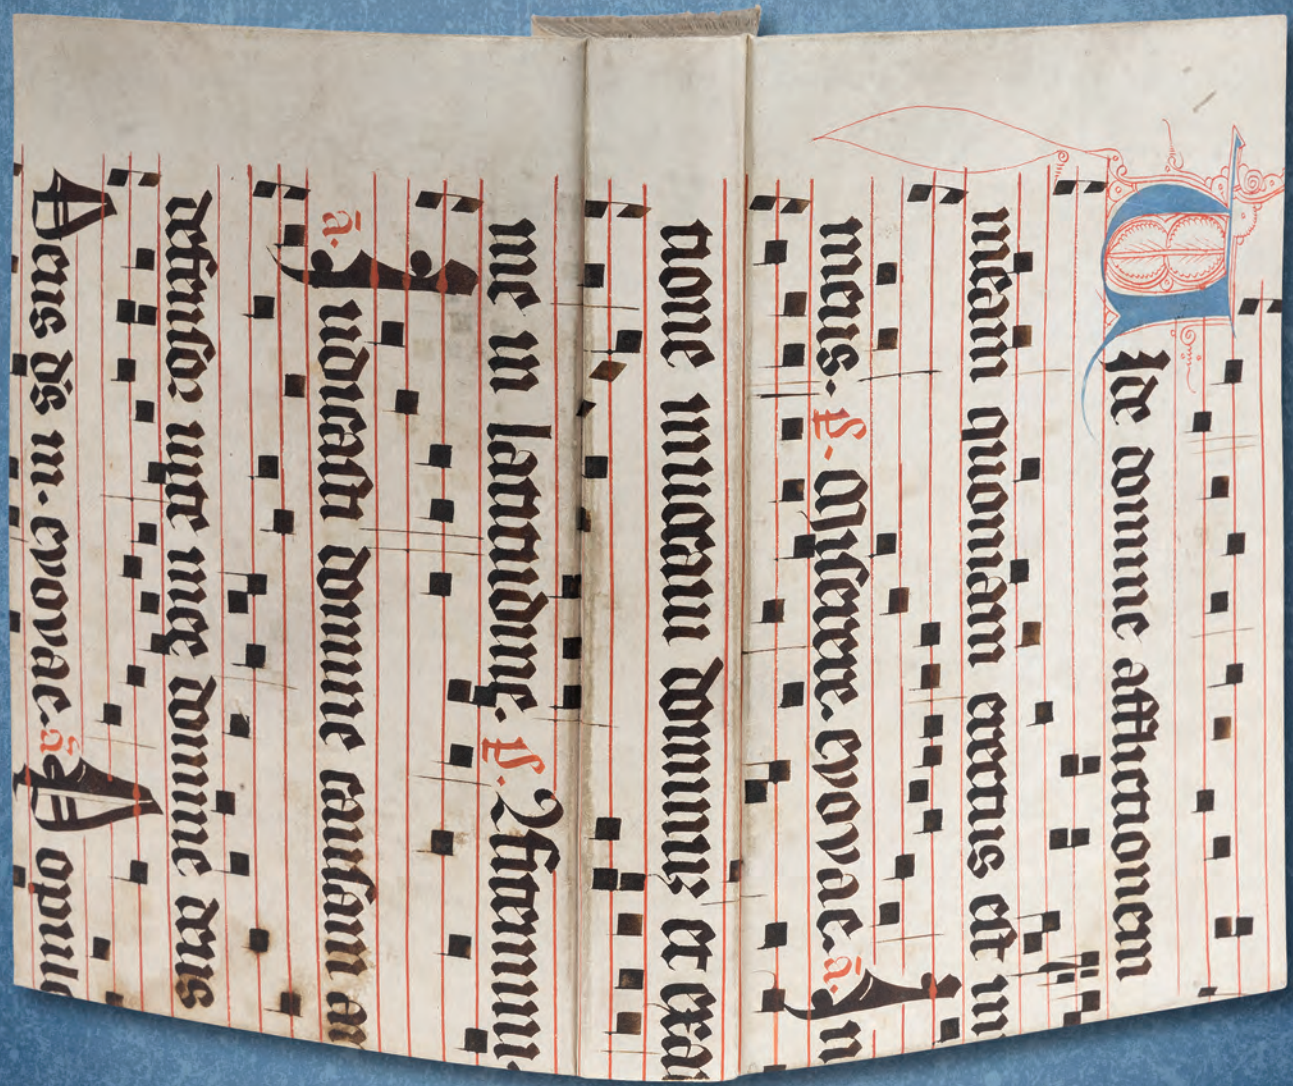 Vide domine afflictionem
meam quoniam erectus est in
meus. ps. Miserere. evovae. a. In
tione inuocaui dominum et exau
me in latitudine. ps. ꝯfitemini.
a. Iudicasti domine causam an
defensor vite mee domine deus
Deus ds m. evovae. a. Popul